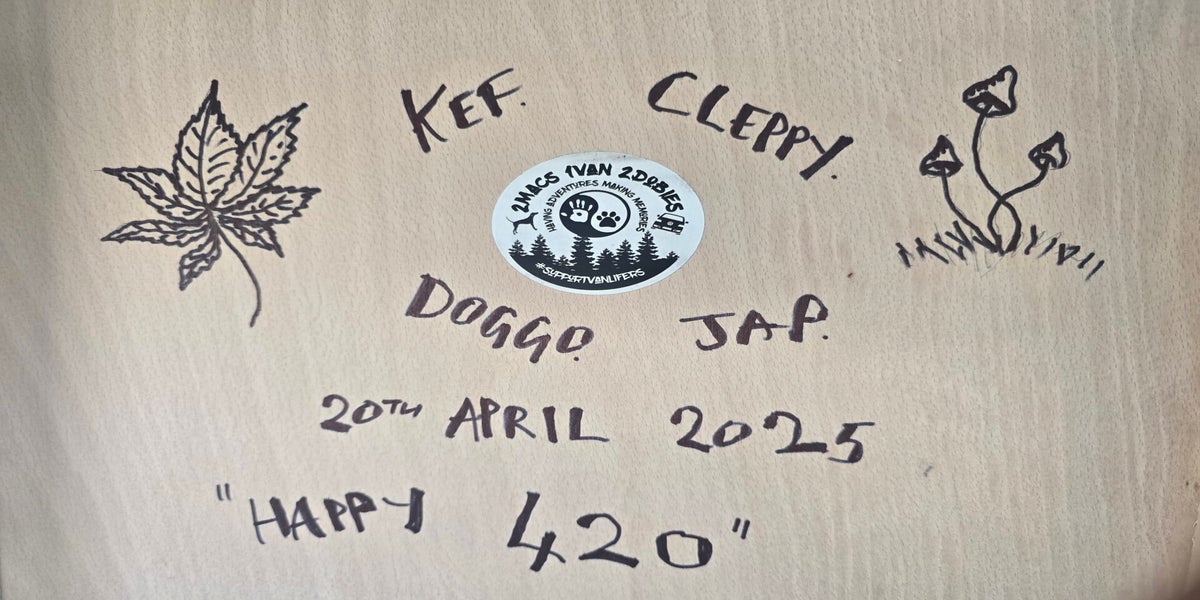 KEF. CLEPPY.
2MACS 1VAN 2DOBIES
HAVING ADVENTURES MAKING MEMORIES
#SUPPORTVANLIFERS
DOGGO. JAP.
20TH APRIL 2025
"HAPPY 420"